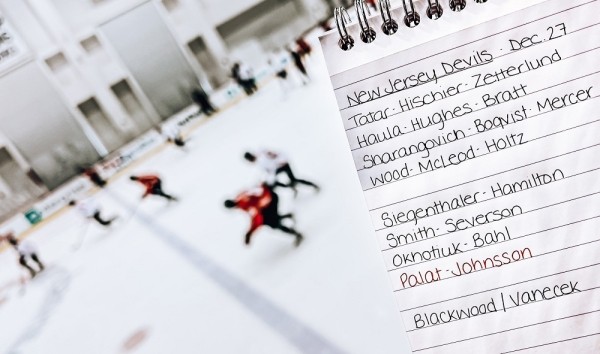 New Jersey Devils · Dec. 27
Tatar · Hischier · Zetterlund
Haula · Hughes · Bratt
Sharangovich · Boqvist · Mercer
Wood · McLeod · Holtz
Siegenthaler · Hamilton
Smith · Severson
Okhotiuk · Bahl
Palat · Johnsson
Blackwood | Vanecek